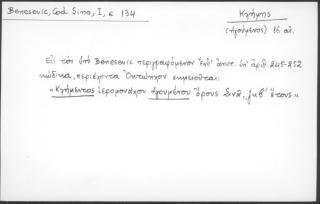 Benesevic, Cod. Sina, I, ε 134
Κλήμης
(ἡγούμενος) 16 αἰ.
Εἰς τὸν ὑπὸ Benesevic περιγραφόμενον ὑπ' ἀριθ. 245-252
κώδικα, περιέχοντα Ὀκτώηχον σημειοῦται:
« Κλήμεντος ἱερομονάχου ἡγουμένου Ὄρους Σινᾶ, ἔτους »